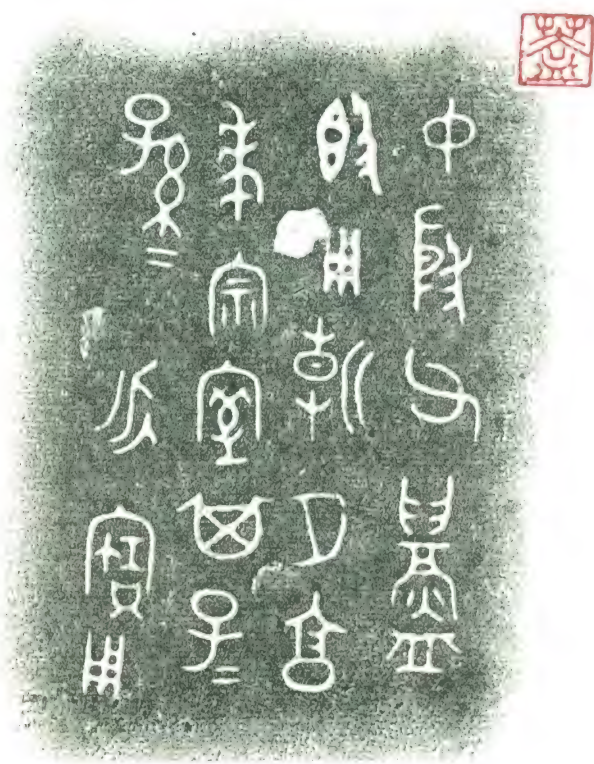 中殷父鑄
𣪘用朝夕亯
孝宗室其子=
孫=永寶用